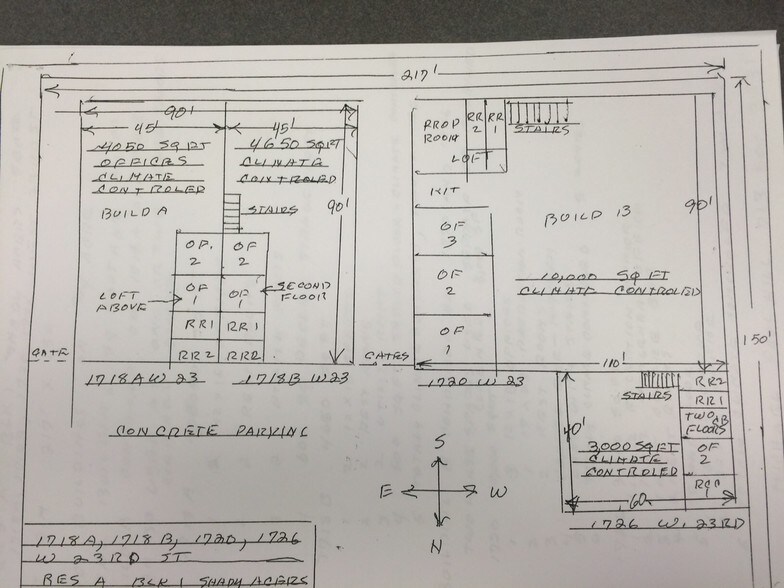 217'
90'
45' 45'
4050 SQ FT
OFFICES
CLIMATE
CONTROLED
BUILD A
4650 SQ FT
CLIMATE
CONTROLED
STAIRS
90'
OF. 2
OF 2
LOFT ABOVE
OF 1
OF 1
SECOND FLOOR
RR1
RR1
RR2
RR2
GATE
GATES
1718 A W 23
1718 B W 23
CONCRETE PARKING
PROP ROOM
RR 2
RR 1
STAIRS
LOFT
KIT
OF 3
OF 2
OF 1
BUILD B
10,000 SQ FT
CLIMATE CONTROLED
90'
150'
110'
1720 W 23
STAIRS
RR2
RR1
TWO FLOORS
40'
3,000 SQ FT
CLIMATE
CONTROLED
OF 2
60'
1726 W. 23RD
S
E W
N
1718 A, 1718 B, 1720, 1726
W 23RD ST
RES A BLK 1 SHADY ACERS